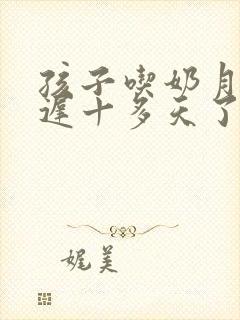 孩子喫奶月
遲十多天了
娓美